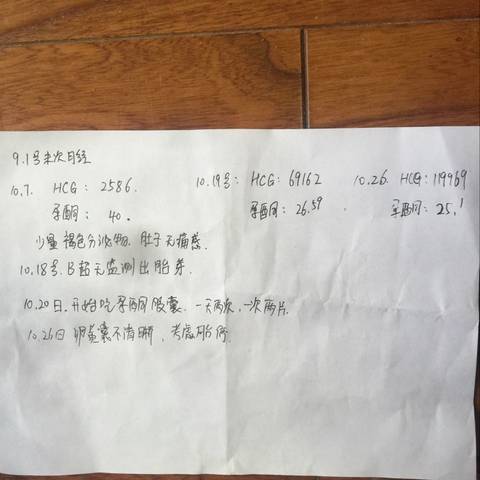 9.1号末次月经
10.7. HCG: 2586. 10.19号: HCG: 69162 10.26. HCG: 119969
孕酮: 40. 孕酮: 26.59. 孕酮: 25.1
少量褐色分泌物. 肚子无痛感.
10.18号.B超无监测出胎芽.
10.20日.开始吃孕酮胶囊. 一天两次,一次两片.
10.26日 卵黄囊不清晰, 考虑胎停.